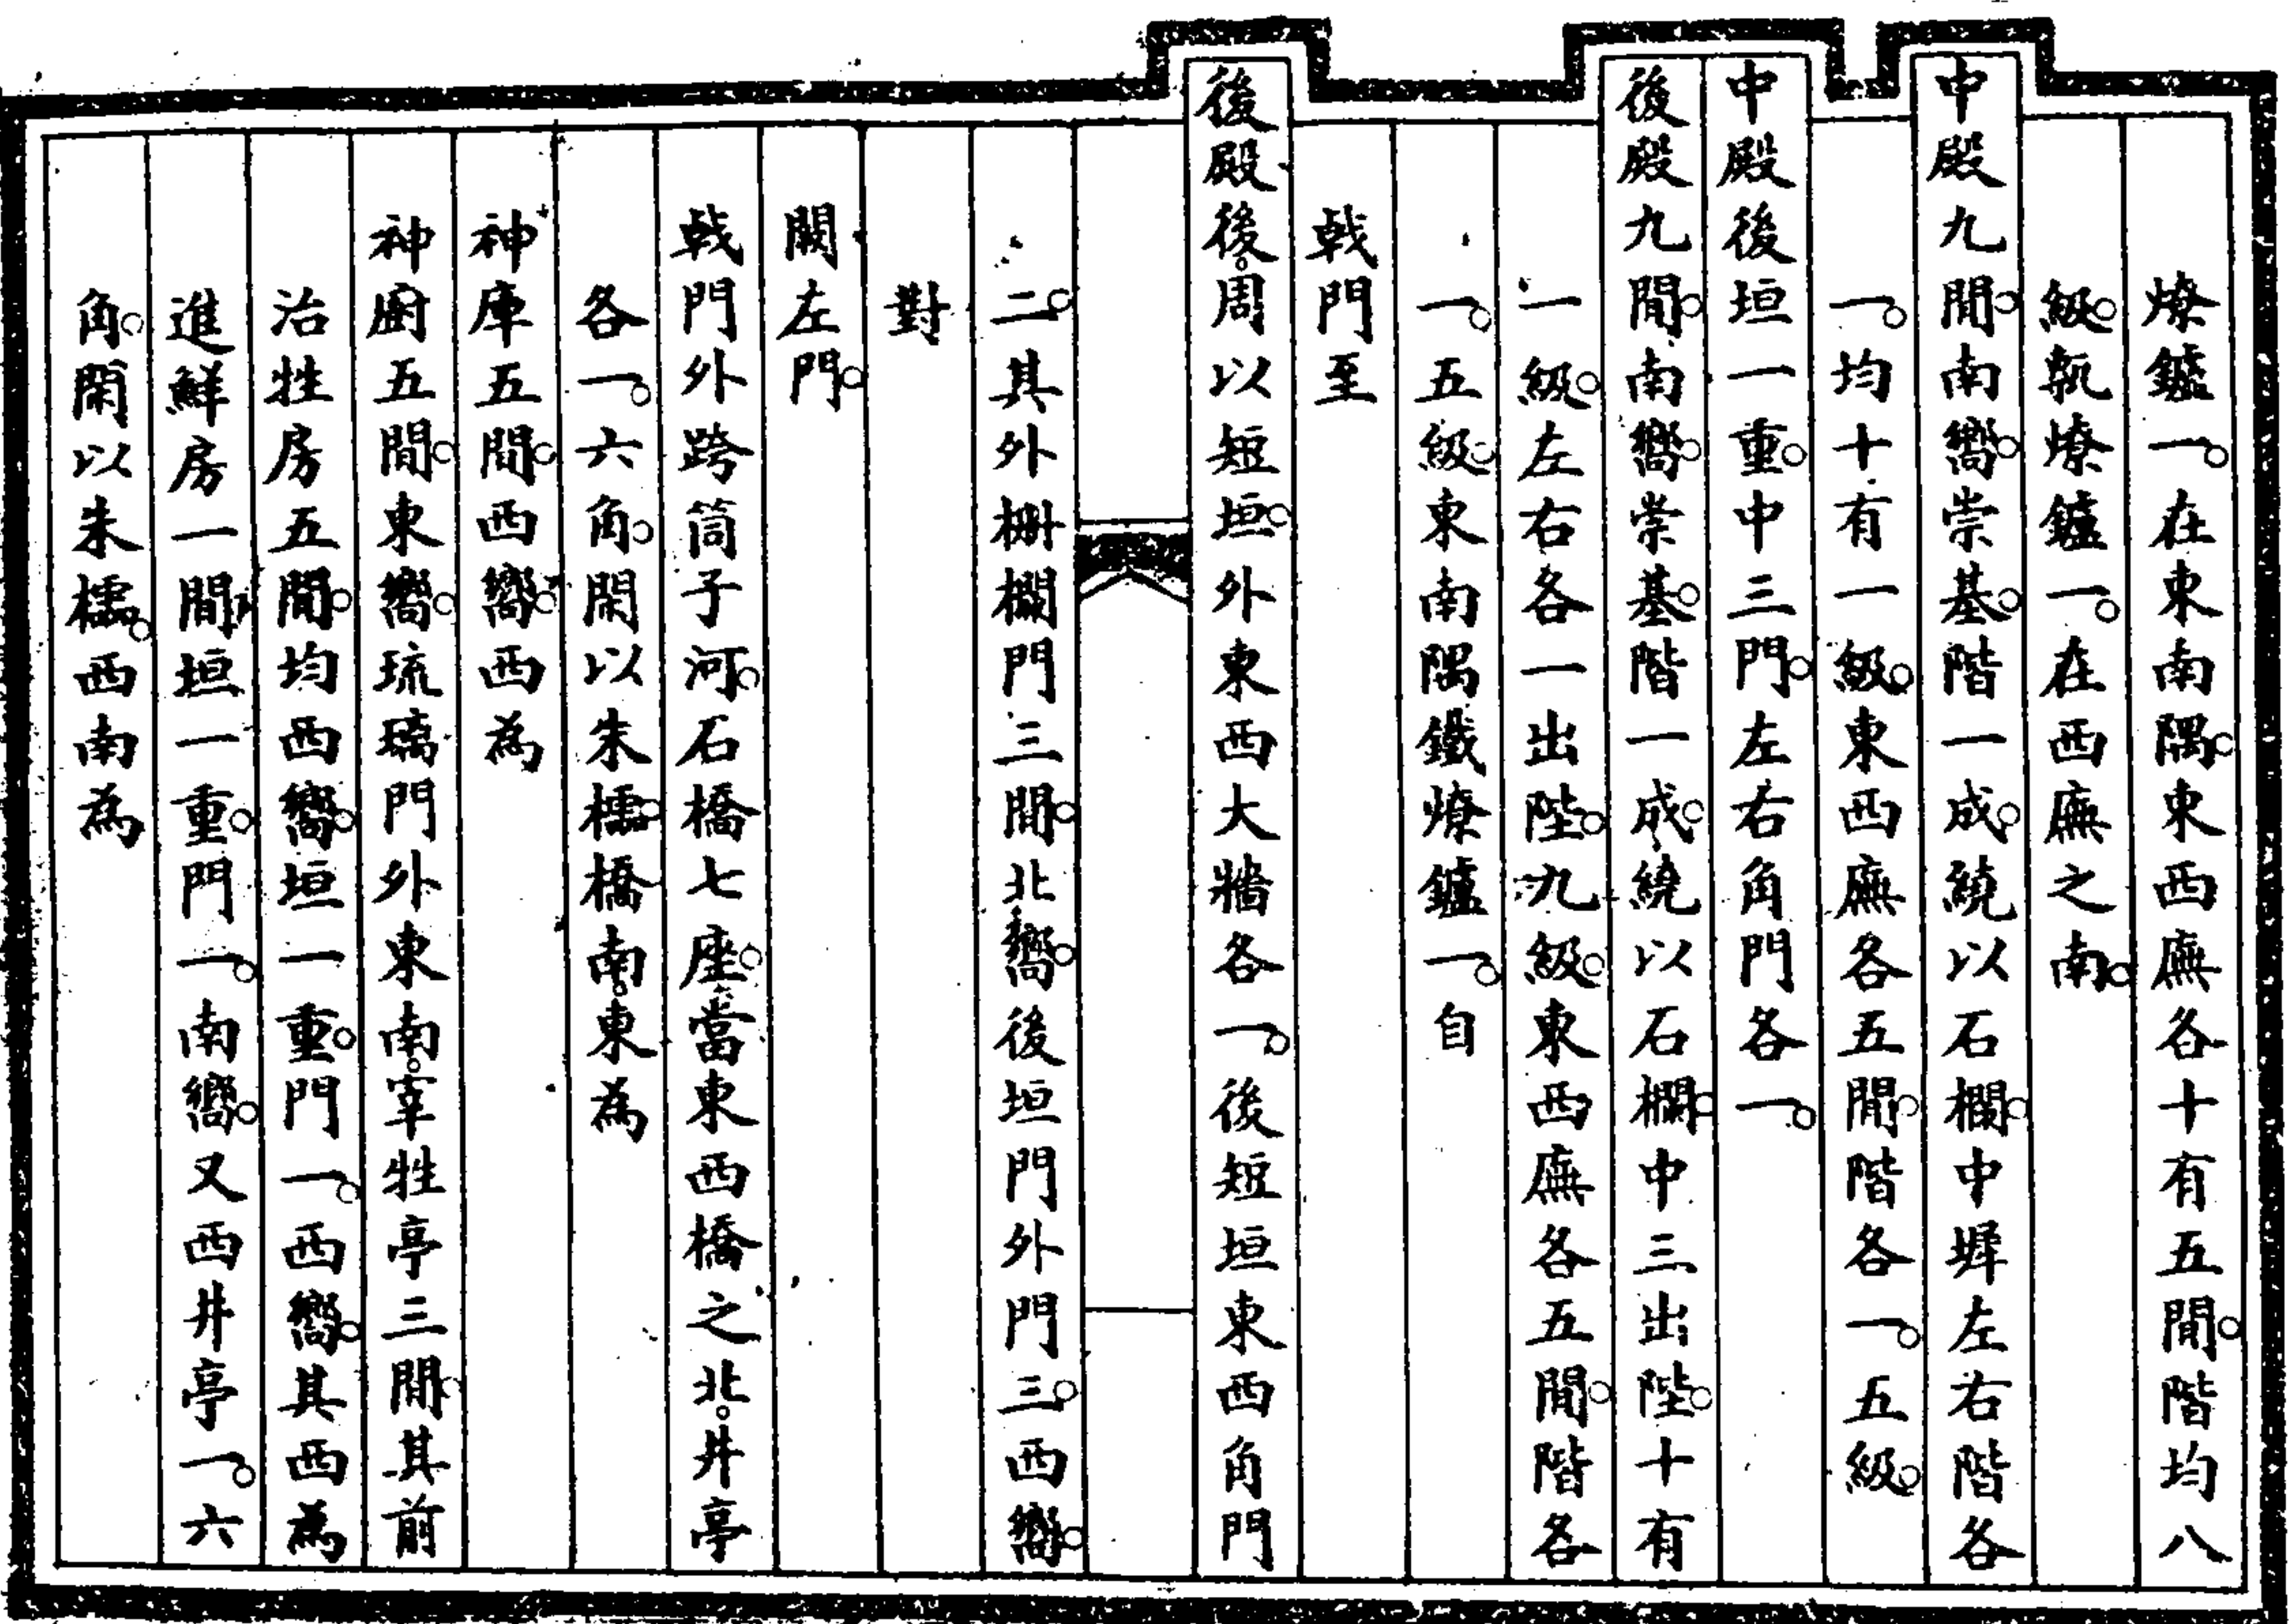 燎鑪一。在東南隅。東西廡各十有五閒。階均八
級。瓡燎鑪一。在西廡之南。
中殿九閒。南嚮。崇基。階一成。繞以石欄。中墀左右階各
一。均十有一級。東西廡各五閒。階各一。五級。
中殿後垣一重。中三門。左右角門各一。
後殿九閒。南嚮。崇基。階一成。繞以石欄。中三出陛。十有
一級。左右各一出陛。九級。東西廡各五閒。階各
一。五級。東南隅鐵燎鑪一。自
戟門至
後殿後。周以短垣。外東西大牆各一。後短垣東西角門
二。其外柵欄門三閒。北嚮。後垣門外門三。西嚮。
對
闕左門。
戟門外跨筒子河。石橋七座。當東西橋之北。井亭
各一。六角。閑以朱檽。橋南。東為
神庫五閒。西嚮。西為
神廚五閒。東嚮。琉璃門外東南。宰牲亭三閒。其前
治牲房五閒。均西嚮。垣一重。門一。西嚮。其西為
進鮮房一閒。垣一重。門一。南嚮。又西井亭一。六
角。閑以朱檽。西南為